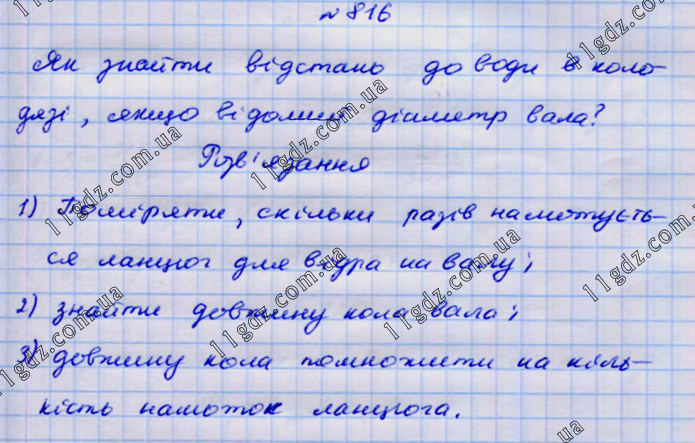 № 816
Як знайти відстань до води в коло-
дязі, якщо відомий діаметр вала?
Розв'язання
1) Поміряти, скільки разів намотуєть-
ся ланцюг для відра на валу;
2) знайти довжину кола вала;
3) довжину кола помножити на кіль-
кість намоток ланцюга.
11gdz.com.ua
11gdz.com.ua
11gdz.com.ua
11gdz.com.ua
11gdz.com.ua
11gdz.com.ua
11gdz.com.ua
11gdz.com.ua
ua